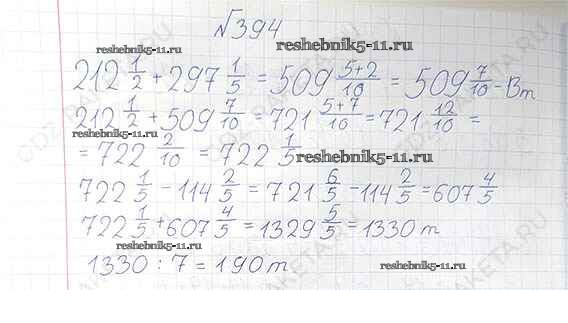 №394
reshebnik5-11.ru reshebnik5-11.ru
212 1/2 + 297 1/5 = 509 5+2/10 = 509 7/10 - Вт
212 1/2 + 509 7/10 = 721 5+7/10 = 721 12/10 =
reshebnik5-11.ru
= 722 2/10 = 722 1/5 reshebnik5-11.ru
722 1/5 - 114 2/5 = 721 6/5 - 114 2/5 = 607 4/5
722 1/5 + 607 4/5 = 1329 5/5 = 1330 т
reshebnik5-11.ru
1330 : 7 = 190 т reshebnik5-11.ru
GDZ-RAKETA.RU